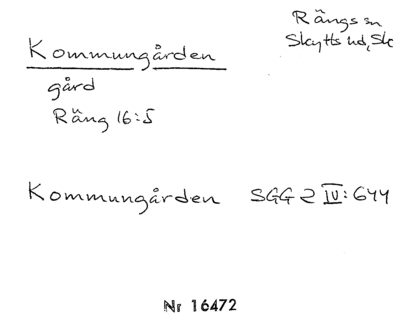 Rängs sn
Skytts hd, Sk
Kommungården
gård
Räng 16:5
Kommungården SGG 2 IV: 644
Nr 16472